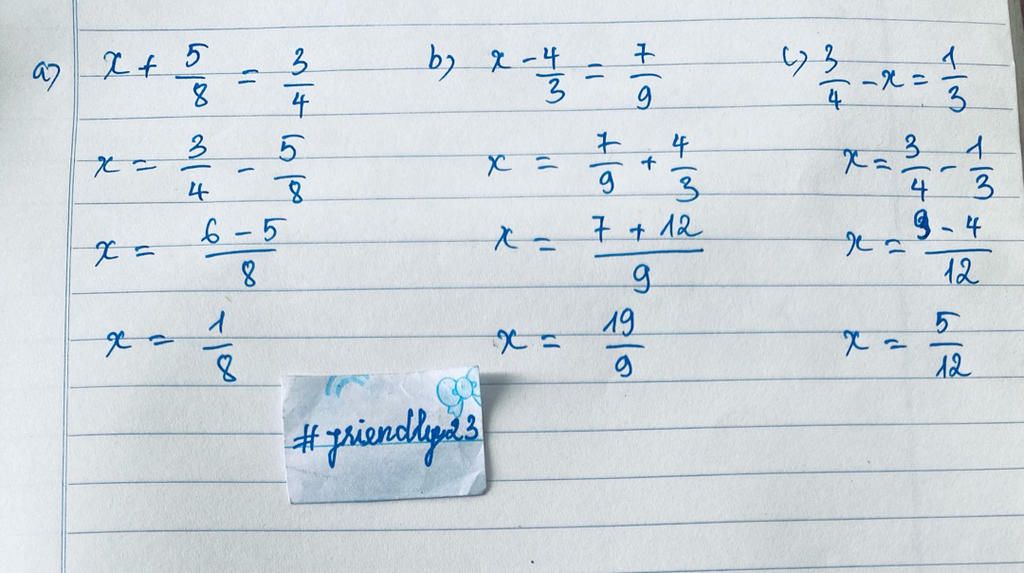 a) x + 5/8 = 3/4
x = 3/4 - 5/8
x = 6 - 5/8
x = 1/8
b) x - 4/3 = 7/9
x = 7/9 + 4/3
x = 7 + 12/9
x = 19/9
c) 3/4 - x = 1/3
x = 3/4 - 1/3
x = 9 - 4/12
x = 5/12
#friendly23